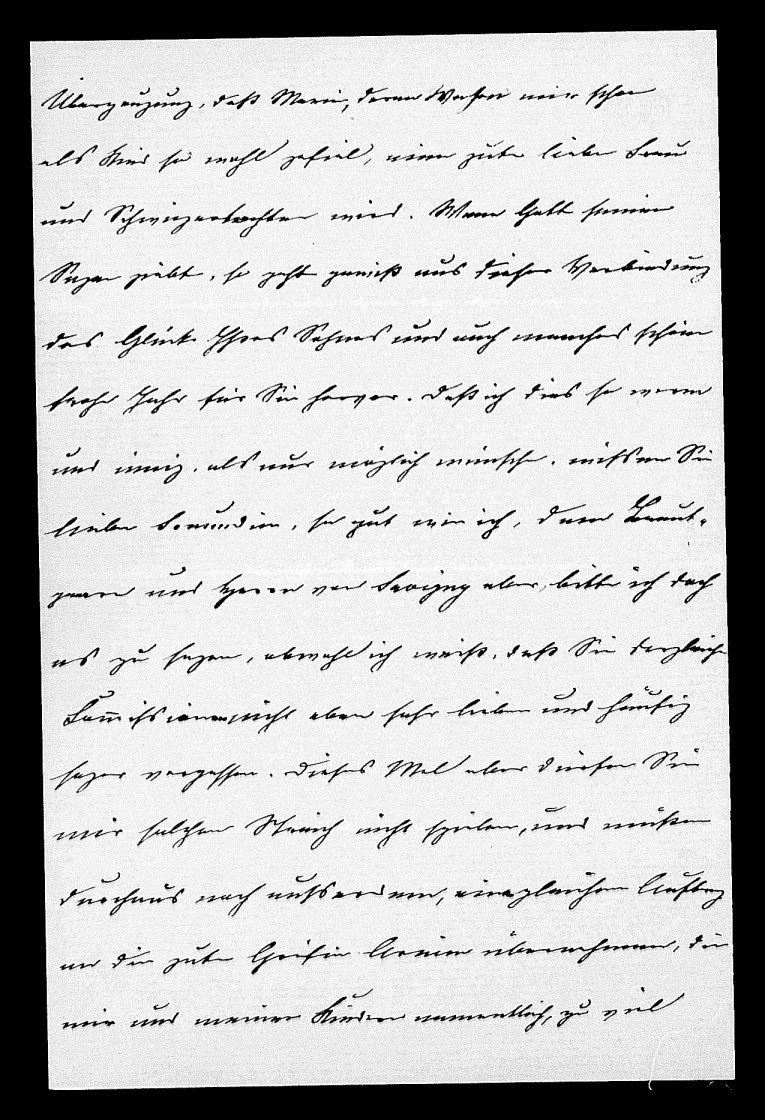 Überzeugung, daß Marie, deren Wesen mir schon
als Kind so wohl gefiel, eine gute liebe Frau
und Schwiegertochter wird. Wenn Gott seinen
Segen giebt, so geht gewiß aus dieser Verbindung
das Glück Ihres Sohnes und auch manches schöne
frohe Jahr für Sie hervor. Daß ich dies so warm
und innig, als nur möglich wünsche, wissen Sie
liebe Freundin, so gut wie ich, dem Braut-
paare und Herrn von Savigny aber, bitte ich doch
es zu sagen, obwohl ich weiß, daß Sie dergleichen
Commissionen nicht eben sehr lieben und häufig
sogar vergessen. Dieses Mal aber dürfen Sie
mir solchen Streich nicht spielen, und müßen
durchaus noch außerdem, einen gleichen Auftrag
an die gute Gräfin Arnim übernehmen, die
mir und meinen Kindern namentlich, zu viel